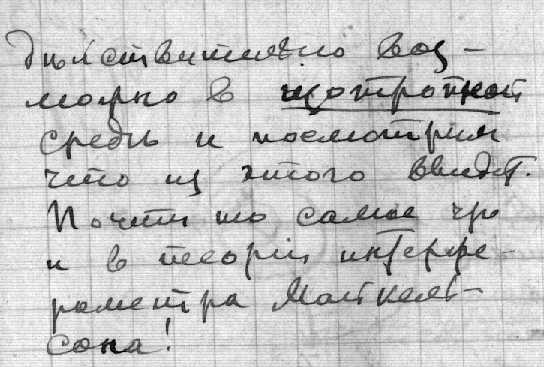 действительно воз-
можно в изотропной
среде и посмотрим
что из этого выйдет.
Почти то самое что
и в теории интерфе-
рометра Майкель-
сона!